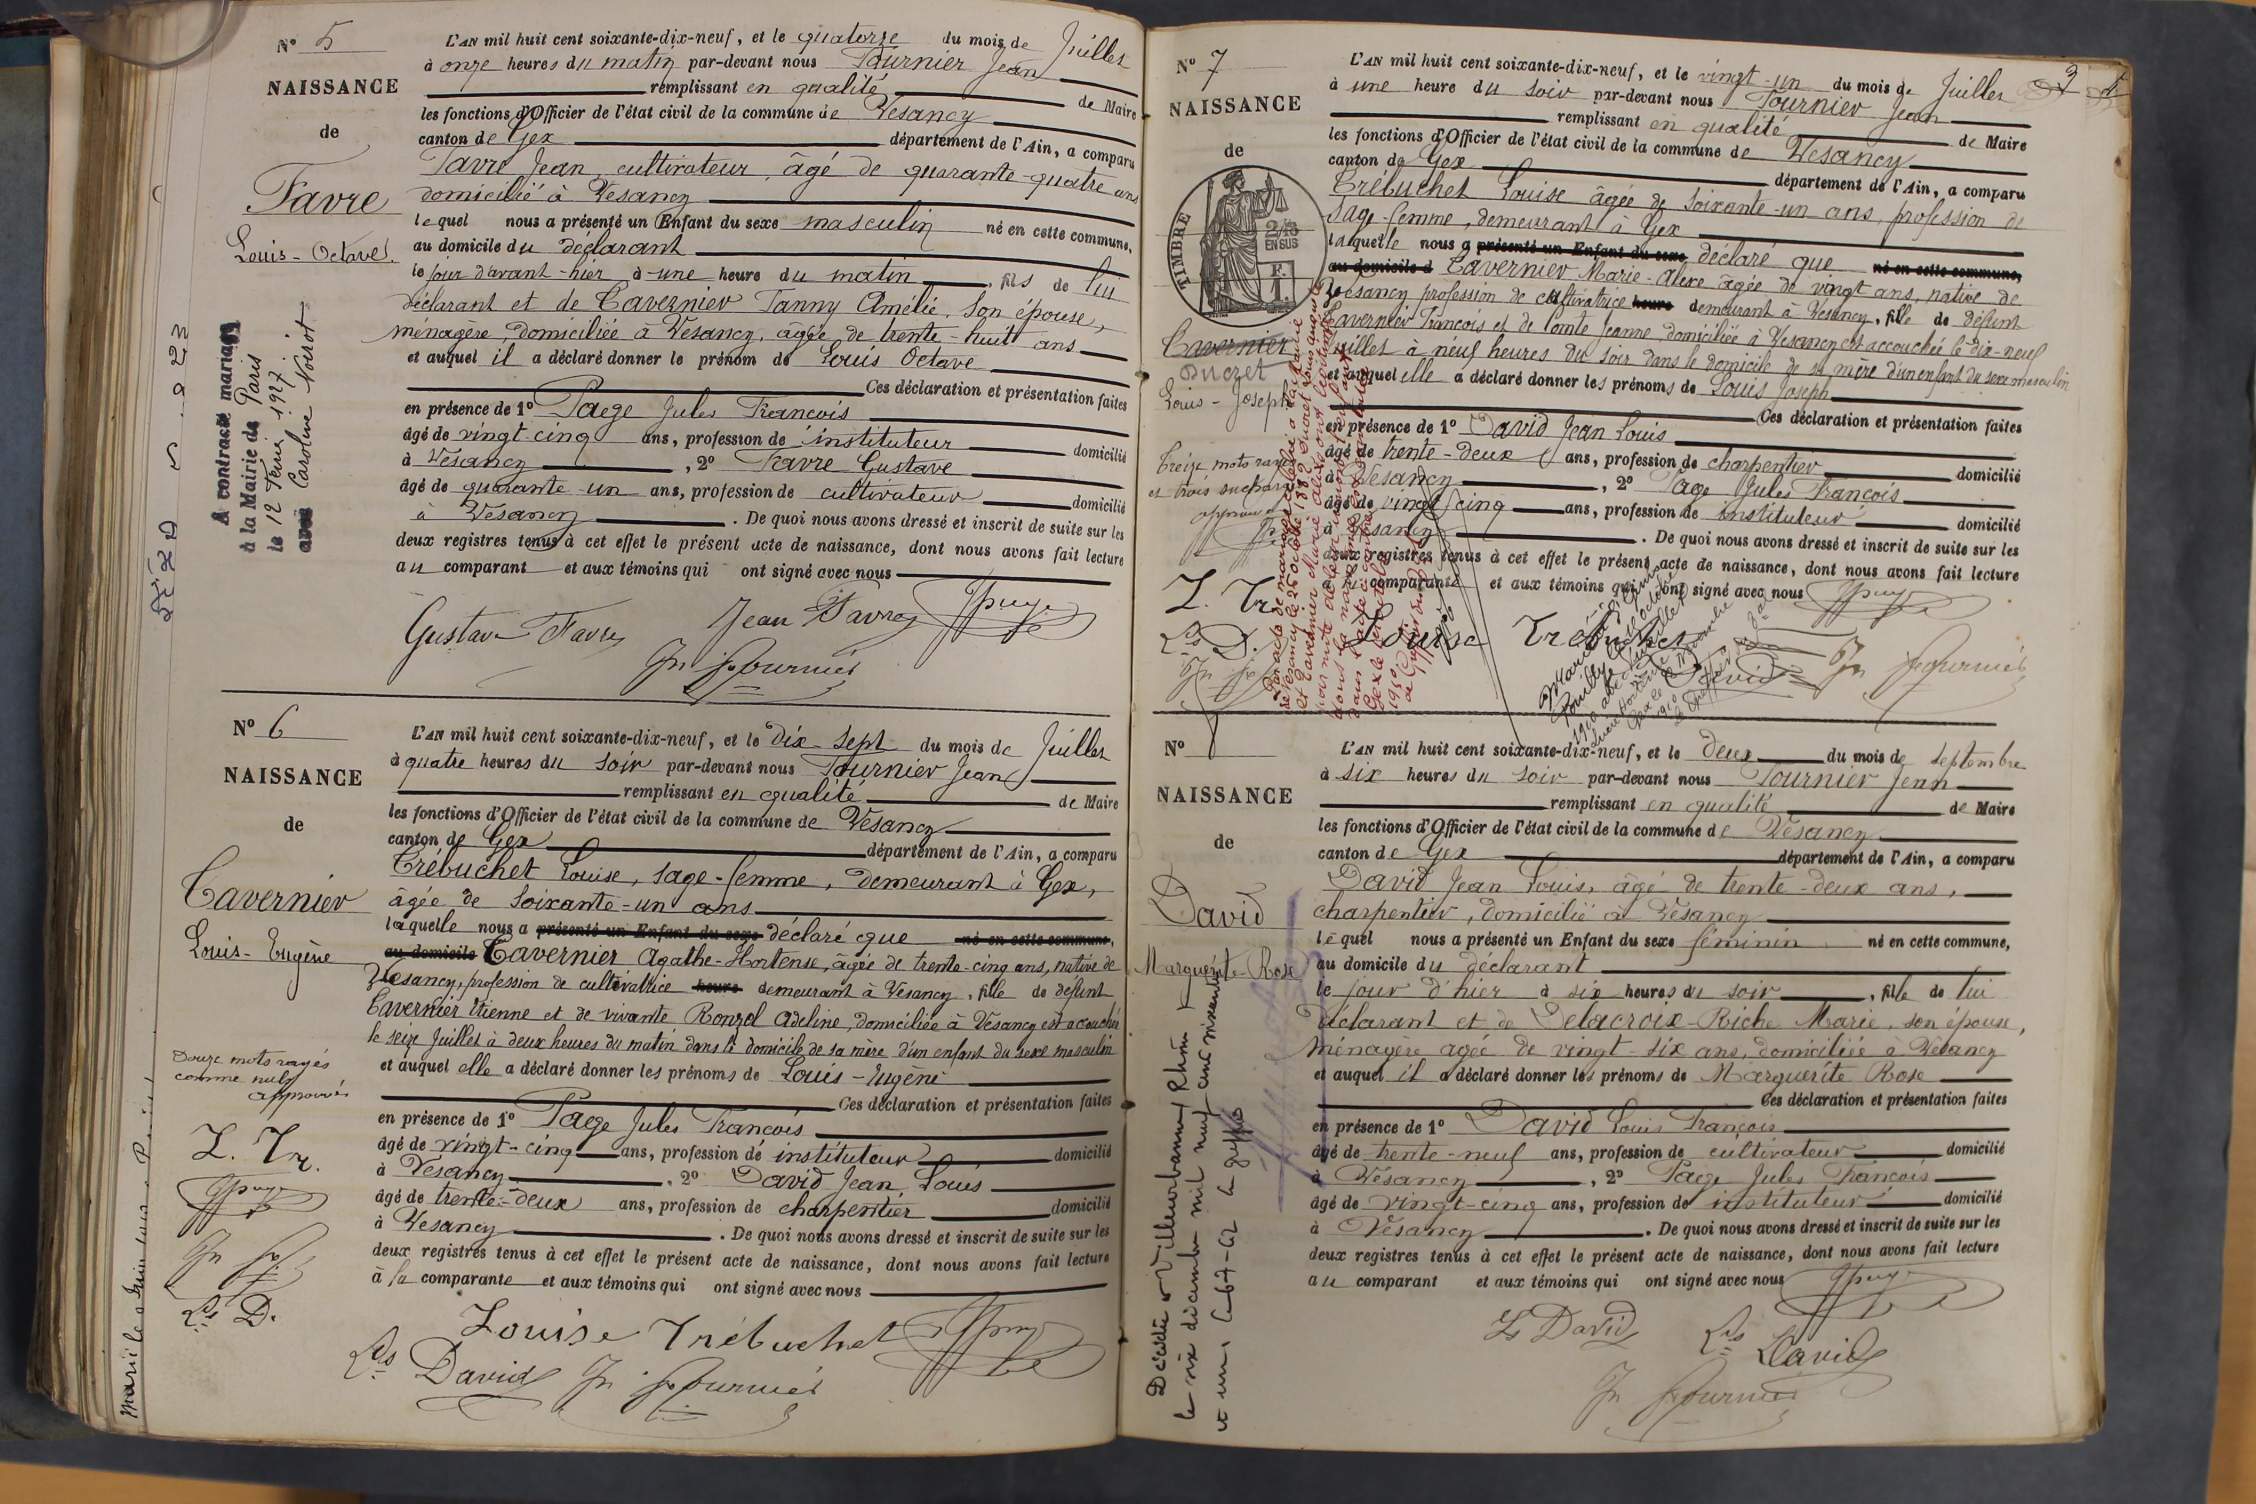 N° 5
NAISSANCE
de
Favre
Louis-Octave
A contracté mariage
à la Mairie de Paris
le 12
1927
avec Caroline Noirot
L'AN mil huit cent soixante-dix-neuf, et le quatorze du mois de Juillet
à onze heures du matin par-devant nous Fournier Jean
remplissant en qualité de Maire
les fonctions d'Officier de l'état civil de la commune de Vesancy
canton de Gex département de l'Ain, a comparu
Favre Jean, cultivateur, âgé de quarante-quatre ans
domicilié à Vesancy
lequel nous a présenté un Enfant du sexe masculin né en cette commune,
au domicile du déclarant
le jour d'avant-hier à une heure du matin, fils de lui
déclarant et de Tavernier Fanny Amélie, son épouse,
ménagère, domiciliée à Vesancy, âgée de trente-huit ans
et auquel il a déclaré donner le prénom de Louis Octave
Ces déclaration et présentation faites
en présence de 1° Paege Jules François
âgé de vingt-cinq ans, profession de instituteur domicilié
à Vesancy, 2° Favre Gustave
âgé de quarante-un ans, profession de cultivateur domicilié
à Vesancy. De quoi nous avons dressé et inscrit de suite sur les
deux registres tenus à cet effet le présent acte de naissance, dont nous avons fait lecture
au comparant et aux témoins qui ont signé avec nous
Gustave Favre Jean Favre
Jn Fournier
N° 6
NAISSANCE
de
Tavernier
Louis-Eugène
Douze mots rayés
comme nuls
approuvés
L. Tr.
Ls D.
L'AN mil huit cent soixante-dix-neuf, et le dix-sept du mois de Juillet
à quatre heures du soir par-devant nous Fournier Jean
remplissant en qualité de Maire
les fonctions d'Officier de l'état civil de la commune de Vesancy
canton de Gex département de l'Ain, a comparu
Trébuchet Louise, sage-femme, demeurant à Gex,
âgée de soixante-un ans
laquelle nous a présenté un Enfant du sexe déclaré que né en cette commune,
au domicile Tavernier Agathe-Hortense, âgée de trente-cinq ans, native de
Vesancy, profession de cultivatrice heure demeurant à Vesancy, fille de défunt
Tavernier Etienne et de vivante Ronzel Adeline, domiciliée à Vesancy est accouchée
le seize Juillet à deux heures du matin dans le domicile de sa mère d'un enfant du sexe masculin
et auquel elle a déclaré donner les prénoms de Louis-Eugène
Ces déclaration et présentation faites
en présence de 1° Paege Jules François
âgé de vingt-cinq ans, profession de instituteur domicilié
à Vesancy, 2° David Jean Louis
âgé de trente-deux ans, profession de charpentier domicilié
à Vesancy. De quoi nous avons dressé et inscrit de suite sur les
deux registres tenus à cet effet le présent acte de naissance, dont nous avons fait lecture
à la comparante et aux témoins qui ont signé avec nous
Louise Trébuchet
Ls David Jn Fournier
N° 7
NAISSANCE
de
TIMBRE
2/10
EN SUS
F.
1
Tavernier
Ducret
Louis-Joseph
Treize mots rayés
et trois surchargés
approuvés
L. Tr.
Ls D.
L'AN mil huit cent soixante-dix-neuf, et le vingt-un du mois de Juillet
à une heure du soir par-devant nous Fournier Jean
remplissant en qualité de Maire
les fonctions d'Officier de l'état civil de la commune de Vesancy
canton de Gex département de l'Ain, a comparu
Trébuchet Louise âgée de soixante-un ans, profession de
sage-femme, demeurant à Gex
laquelle nous a présenté un Enfant du sexe déclaré que né en cette commune,
au domicile d Tavernier Marie-Alixe âgée de vingt ans, native de
Vesancy profession de cultivatrice heure demeurant à Vesancy, fille de défunt
Tavernier François et de Comte Jeanne, domiciliée à Vesancy est accouchée le dix-neuf
Juillet à neuf heures du soir dans le domicile de sa mère d'un enfant du sexe masculin
et auquel elle a déclaré donner les prénoms de Louis Joseph
Ces déclaration et présentation faites
en présence de 1° David Jean Louis
âgé de trente-deux ans, profession de charpentier domicilié
à Vesancy, 2° Paege Jules François
âgé de vingt-cinq ans, profession de instituteur domicilié
à Vesancy. De quoi nous avons dressé et inscrit de suite sur les
deux registres tenus à cet effet le présent acte de naissance, dont nous avons fait lecture
à la comparante et aux témoins qui ont signé avec nous
Louise Trébuchet
David Jn Fournier
N° 8
NAISSANCE
de
David
Marguerite-Rose
Décédée à Villeurbanne Rhône
le six décembre mil neuf cent soixante
et un,
L'AN mil huit cent soixante-dix-neuf, et le deux du mois de septembre
à six heures du soir par-devant nous Fournier Jean
remplissant en qualité de Maire
les fonctions d'Officier de l'état civil de la commune de Vesancy
canton de Gex département de l'Ain, a comparu
David Jean Louis, âgé de trente-deux ans,
charpentier, domicilié à Vesancy
lequel nous a présenté un Enfant du sexe féminin né en cette commune,
au domicile du déclarant
le jour d'hier à six heures du soir, fille de lui
déclarant et de Delacroix-Riche Marie, son épouse,
ménagère, agée de vingt-six ans, domiciliée à Vesancy
et auquel il a déclaré donner les prénoms de Marguerite Rose
Ces déclaration et présentation faites
en présence de 1° David Louis François
âgé de trente-neuf ans, profession de cultivateur domicilié
à Vesancy, 2° Paege Jules François
âgé de vingt-cinq ans, profession de instituteur domicilié
à Vesancy. De quoi nous avons dressé et inscrit de suite sur les
deux registres tenus à cet effet le présent acte de naissance, dont nous avons fait lecture
au comparant et aux témoins qui ont signé avec nous
Ls David
Jn Fournier